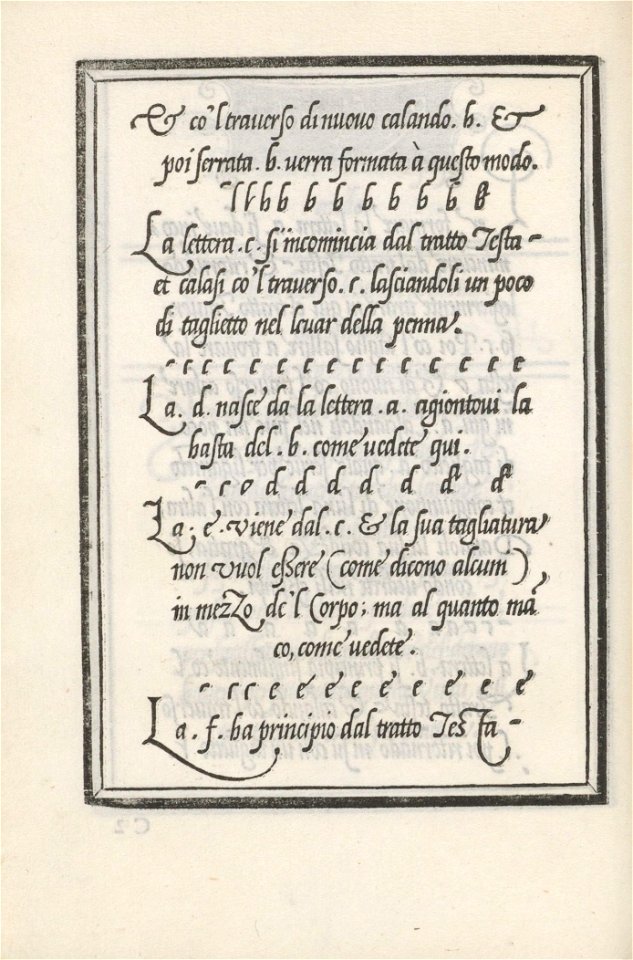 & co'l traverso di nuovo calando. b. &
poi serrata. b. verra formata à questo modo.
l l b b b b b b b b b b
La lettera .c. si incomincia dal tratto Testa -
et calasi co'l traverso. c. lasciandoli un poco
di taglietto nel levar della penna.
- c c c c c c c c c c c c c
La. d. nasce da la lettera .a. agiontovi la
hasta del .b. come vedete qui.
- c o d d d d d d d
La. e. viene dal .c. & la sua tagliatura
non vuol essere (come dicono alcuni)
in mezzo de'l Corpo; ma al quanto mā
co, come vedete.
- c c c e e e e e e e e
La. f. ha principio dal tratto Testa -
C 2